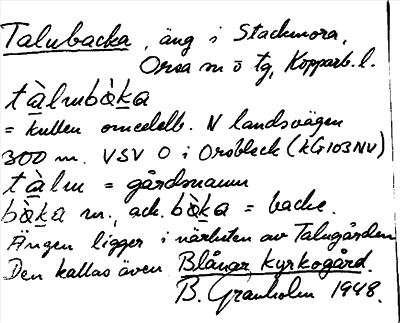 Talubacka, äng i Stackmora,
Orsa sn ö tg, Kopparb. l.
tàlmbàka
= kullen omedelb. N landsvägen
300 m. VSV O i Orsbleck (kG103NV)
tàlm = gårdsnamn
bàka m., ack. bàka = backe.
Ängen ligger i närheten av Talugården
Den kallas även Blånar kyrkogård.
B. Granholm 1948.